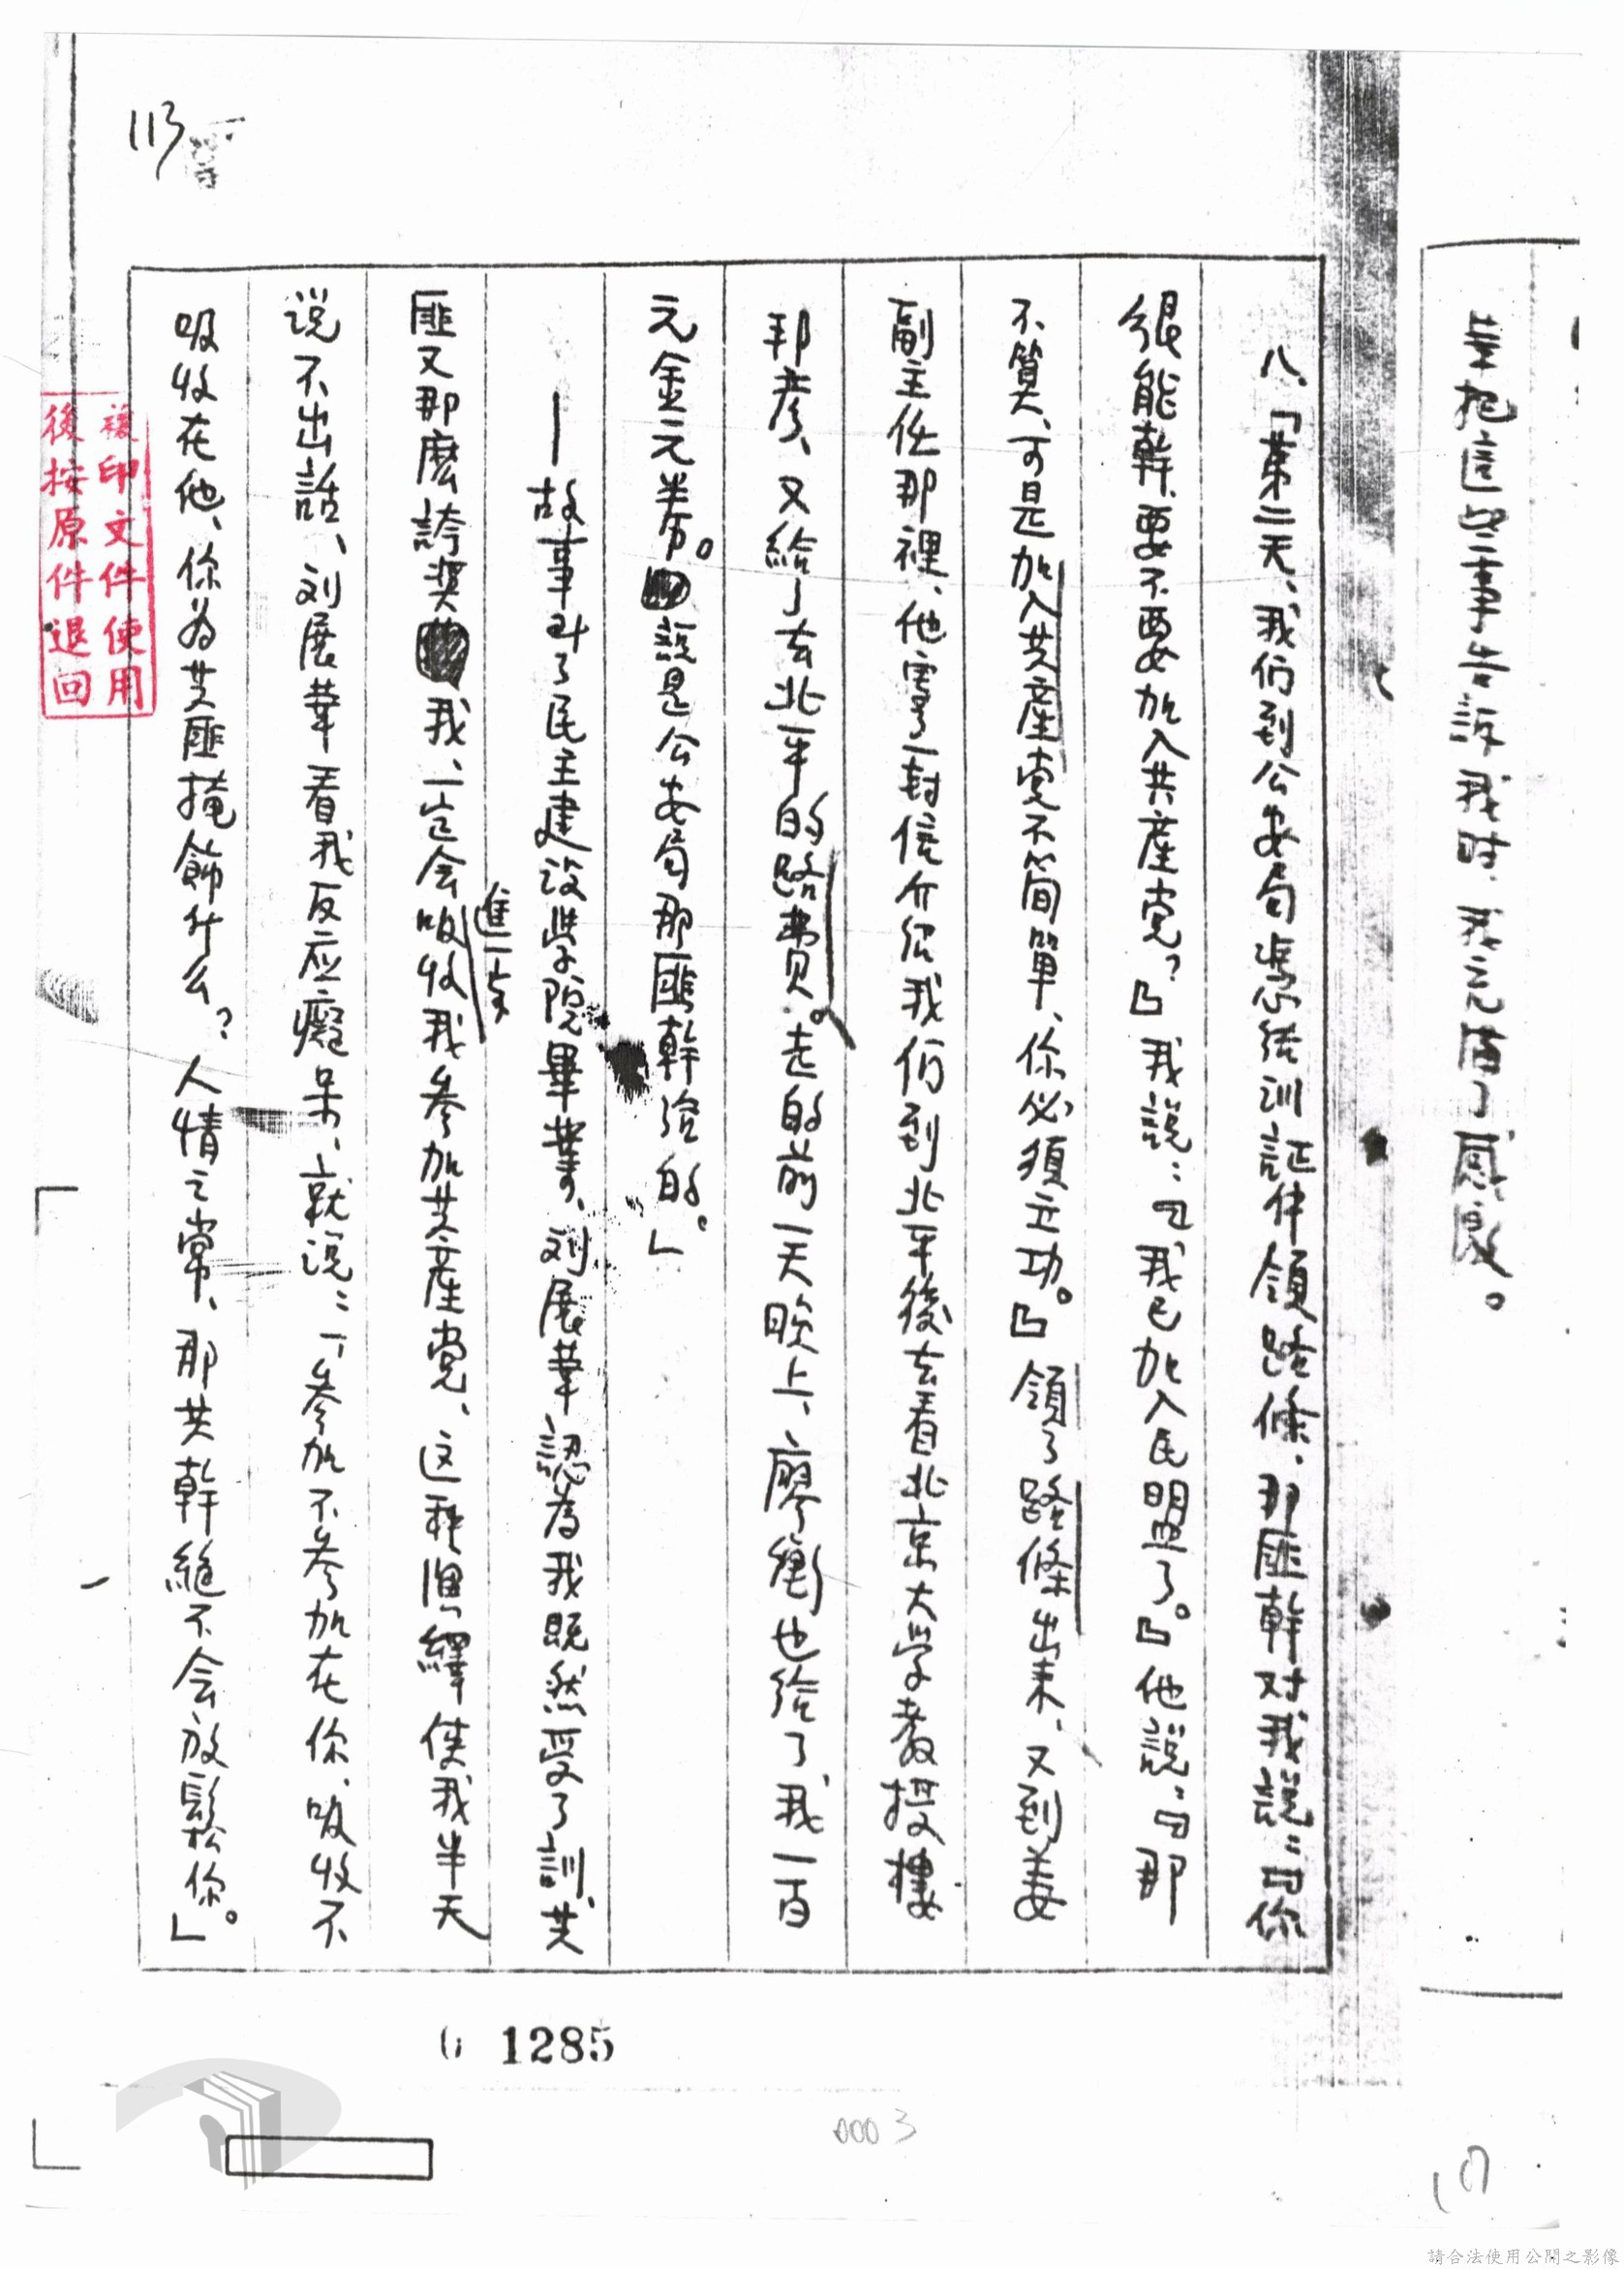 華把這些事告訴我时，我充滿了感激。
八、「第二天，我们到公安局憑结訓証件領路條，那匪幹对我說：『你
很能幹，要不要加入共產党？』我說：『我已加入民盟了。』他說：『那
不算，可是加入共產党不简單，你必須立功。』領了路條出来，又到姜
副主任那裡，他寫了一封信介绍我们到北平後去看北京大学教授樓
邦彦，又給了去北平的路費。走的前一天晚上，廖衡也给了我一百
元金元券。說是公安局那匪幹给的。」
—故事到了民主建设学院畢業，刘展華認為我既然受了訓，共
匪又那麽誇奖我，一定会進一步吸收我参加共產党，这种演繹使我半天
说不出話，刘展華看我反应癡呆，就说：「参加不参加在你，吸收不
吸收在他，你為共匪掩飾什么？人情之常，那共幹絕不会放鬆你。」
複印文件使用
後按原件退回
113
1285
0003
請合法使用公開之影像